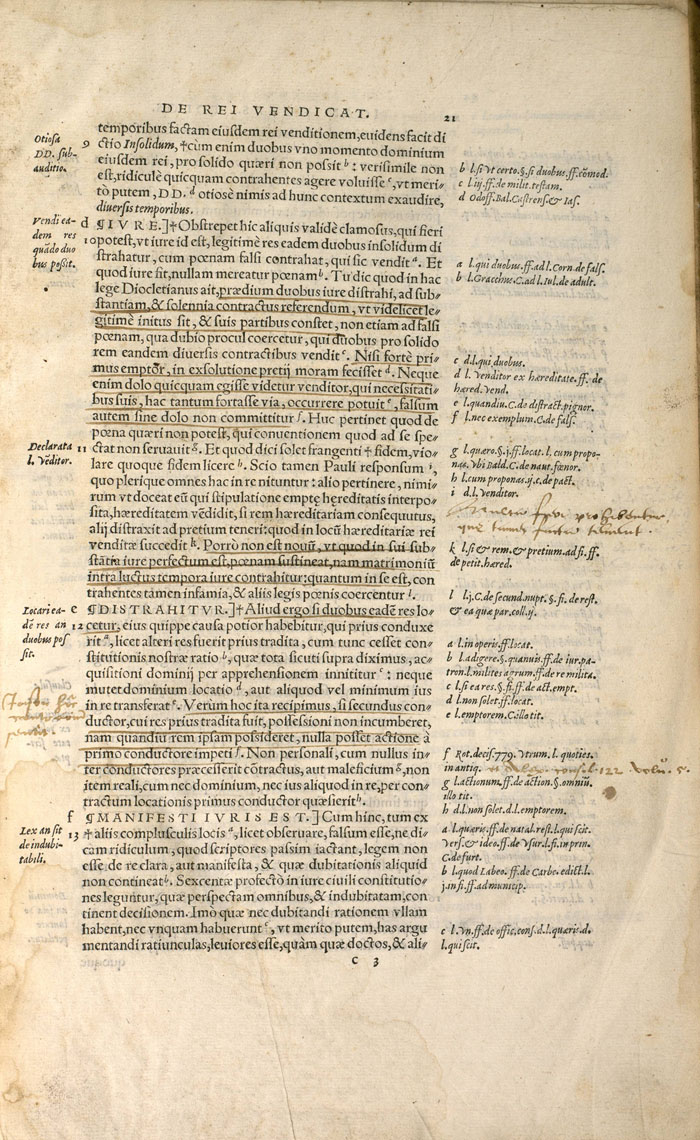 DE REI VENDICAT.
21
temporibus factam eiusdem rei venditionem, euidens facit di
9 ctio Insolidum, †cùm enim duobus vno momento dominium
eiusdem rei, pro solido quæri non possit b: verisimile non
est, ridiculè quicquam contrahentes agere voluisse c, vt meri-
tò putem, DD. d otiosè nimis ad hunc contextum exaudire,
diuersis temporibus.
Otiosa
DD. sub-
auditio.
b l. si vt certo. §. si duobus. ff. cōmod.
c l. iij. ff. de milit. testam.
d Odoff. Bal. Castrens. & Ias.
d ¶IVRE.] †Obstrepet hic aliquis validè clamosus, qui fieri
10 potest, vt iure id est, legitimè res eadem duobus insolidum di
strahatur, cum pœnam falsi contrahat, qui sic vendit a. Et
quod iure sit, nullam mereatur pœnam b. Tu dic quod in hac
lege Diocletianus ait, prædium duobus iure distrahi, ad sub-
stantiam, & solennia contractus referendum, vt videlicet le-
gitimè initus sit, & suis partibus constet, non etiam ad falsi
pœnam, qua dubio procul coercetur, qui duobus pro solido
rem eandem diuersis contractibus vendit c. Nisi fortè pri-
mus emptor, in exsolutione pretij moram fecisset d. Neque
enim dolo quicquam egisse videtur venditor, qui necessitati-
bus suis, hac tantum fortasse via, occurrere potuit e, falsum
autem sine dolo non committitur f. Huc pertinet quod de
pœna quæri non potest, qui conuentionem quod ad se spe-
11 ctat non seruauit g. Et quod dici solet frangenti † fidem, vio-
lare quoque fidem licere h. Scio tamen Pauli responsum i,
quo plerique omnes hac in re nituntur: alio pertinere, nimi-
rum vt doceat eū qui stipulatione emptę hęreditatis interpo-
sita, hæreditatem vēdidit, si rem hæreditariam consequutus,
alij distraxit ad pretium teneri: quod in locū hæreditariæ rei
venditæ succedit k. Porrò non est nouū, vt quod in sui sub-
stātia iure perfectum est, pœnam sustineat, nam matrimoniū
intra luctus tempora iure contrahitur: quantum in se est, con
trahentes tamen infamia, & alijs legis pœnis coercentur l.
Vendi ea-
dem res
quādo duo
bus possit.
Declarata
l. Vēditor.
a l. qui duobus. ff. ad l. Corn. de fals.
b l. Gracchus. C. ad l. Iul. de adult.
c d. l. qui duobus.
d l. Venditor ex hæreditate. ff. de
hæred. vend.
e l. quandiu. C. de distract. pignor.
f l. nec exemplum. C. de fals.
g l. quæro. §. j. ff. locat. l. cum propo-
nas. vbi Bald. C. de naut. fœnor.
h l. cum proponas. ij. c. de pact.
i d. l. Venditor.
k l. si & rem. & pretium. ad fi. ff.
de petit. hæred.
l l. j. C. de secund. nupt. §. fi. de rest.
& ea quæ par. coll. ij.
e ¶DISTRAHITVR.] †Aliud ergo si duobus eadē res lo-
12 cetur, eius quippe causa potior habebitur, qui prius conduxe
rit a, licet alteri res fuerit prius tradita, cum tunc cesset con-
stitutionis nostræ ratio b, quæ tota sicuti supra diximus, ac-
quisitioni dominij per apprehensionem innititur c: neque
mutet dominium locatio d, aut aliquod vel minimum ius
in re transferat e. Verùm hoc ita recipimus, si secundus con-
ductor, cui res prius tradita fuit, possessioni non incumberet,
nam quandiu rem ipsam possideret, nulla posset actione à
primo conductore impeti f. Non personali, cum nullus in-
ter conductores præcesserit cōtractus, aut maleficium g, non
item reali, cum nec dominium, nec ius aliquod in re, per con-
tractum locationis primus conductor quæsierit h.
Locari ea-
dē res an
duobus pos
sit.
a l. in operis. ff. locat.
b l. adigere. §. quamuis. ff. de iur. pa-
tron. l. milites agrum. ff. de re milita.
c l. si ea res. §. fi. ff. de act. empt.
d l. non solet. ff. locat.
e l. emptorem. C. illo tit.
f Rot. decis. 779. Vtrum. l. quoties.
in antiq.
g l. actionum. ff. de action. §. omniū.
illo tit.
h d. l. non solet. d. l. emptorem.
f ¶MANIFESTI IVRIS EST.] Cum hinc, tum ex
13 † alijs complusculis locis a, licet obseruare, falsum esse, ne di-
cam ridiculum, quod scriptores passim iactant, legem non
esse de re clara, aut manifesta, & quæ dubitationis aliquid
non contineat b. Sexcentæ profectò in iure ciuili constitutio-
nes leguntur, quæ perspectam omnibus, & indubitatam, con
tinent decisionem. Imò quæ nec dubitandi rationem vllam
habent, nec vnquam habuerunt c, vt merito putem, has argu
mentandi ratiunculas, leuiores esse, quàm quæ doctos, & ali-
Lex an sit
de indubi-
tabili.
a l. quæris. ff. de natal. rest. l. qui scit.
vers. & ideo. ff. de vsur. l. fi. in prin.
C. de furt.
b l. quod Labeo. ff. de Carbo. edict. l.
j. in fi. ff. ad municip.
c l. vn. ff. de offic. cons. d. l. quæris. d.
l. qui scit.
C 3